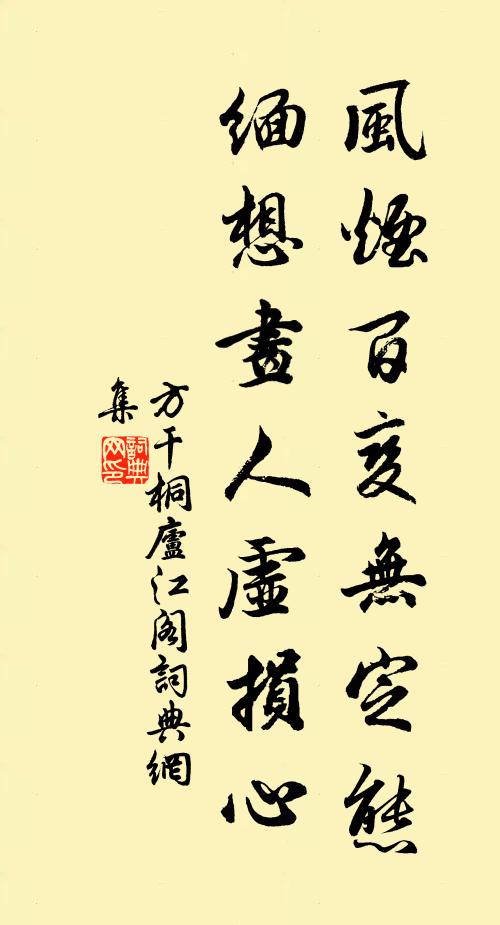 風煙百變無定態
緬想畫人虛損心
方干桐廬江閣詞典網
集
詞典網印